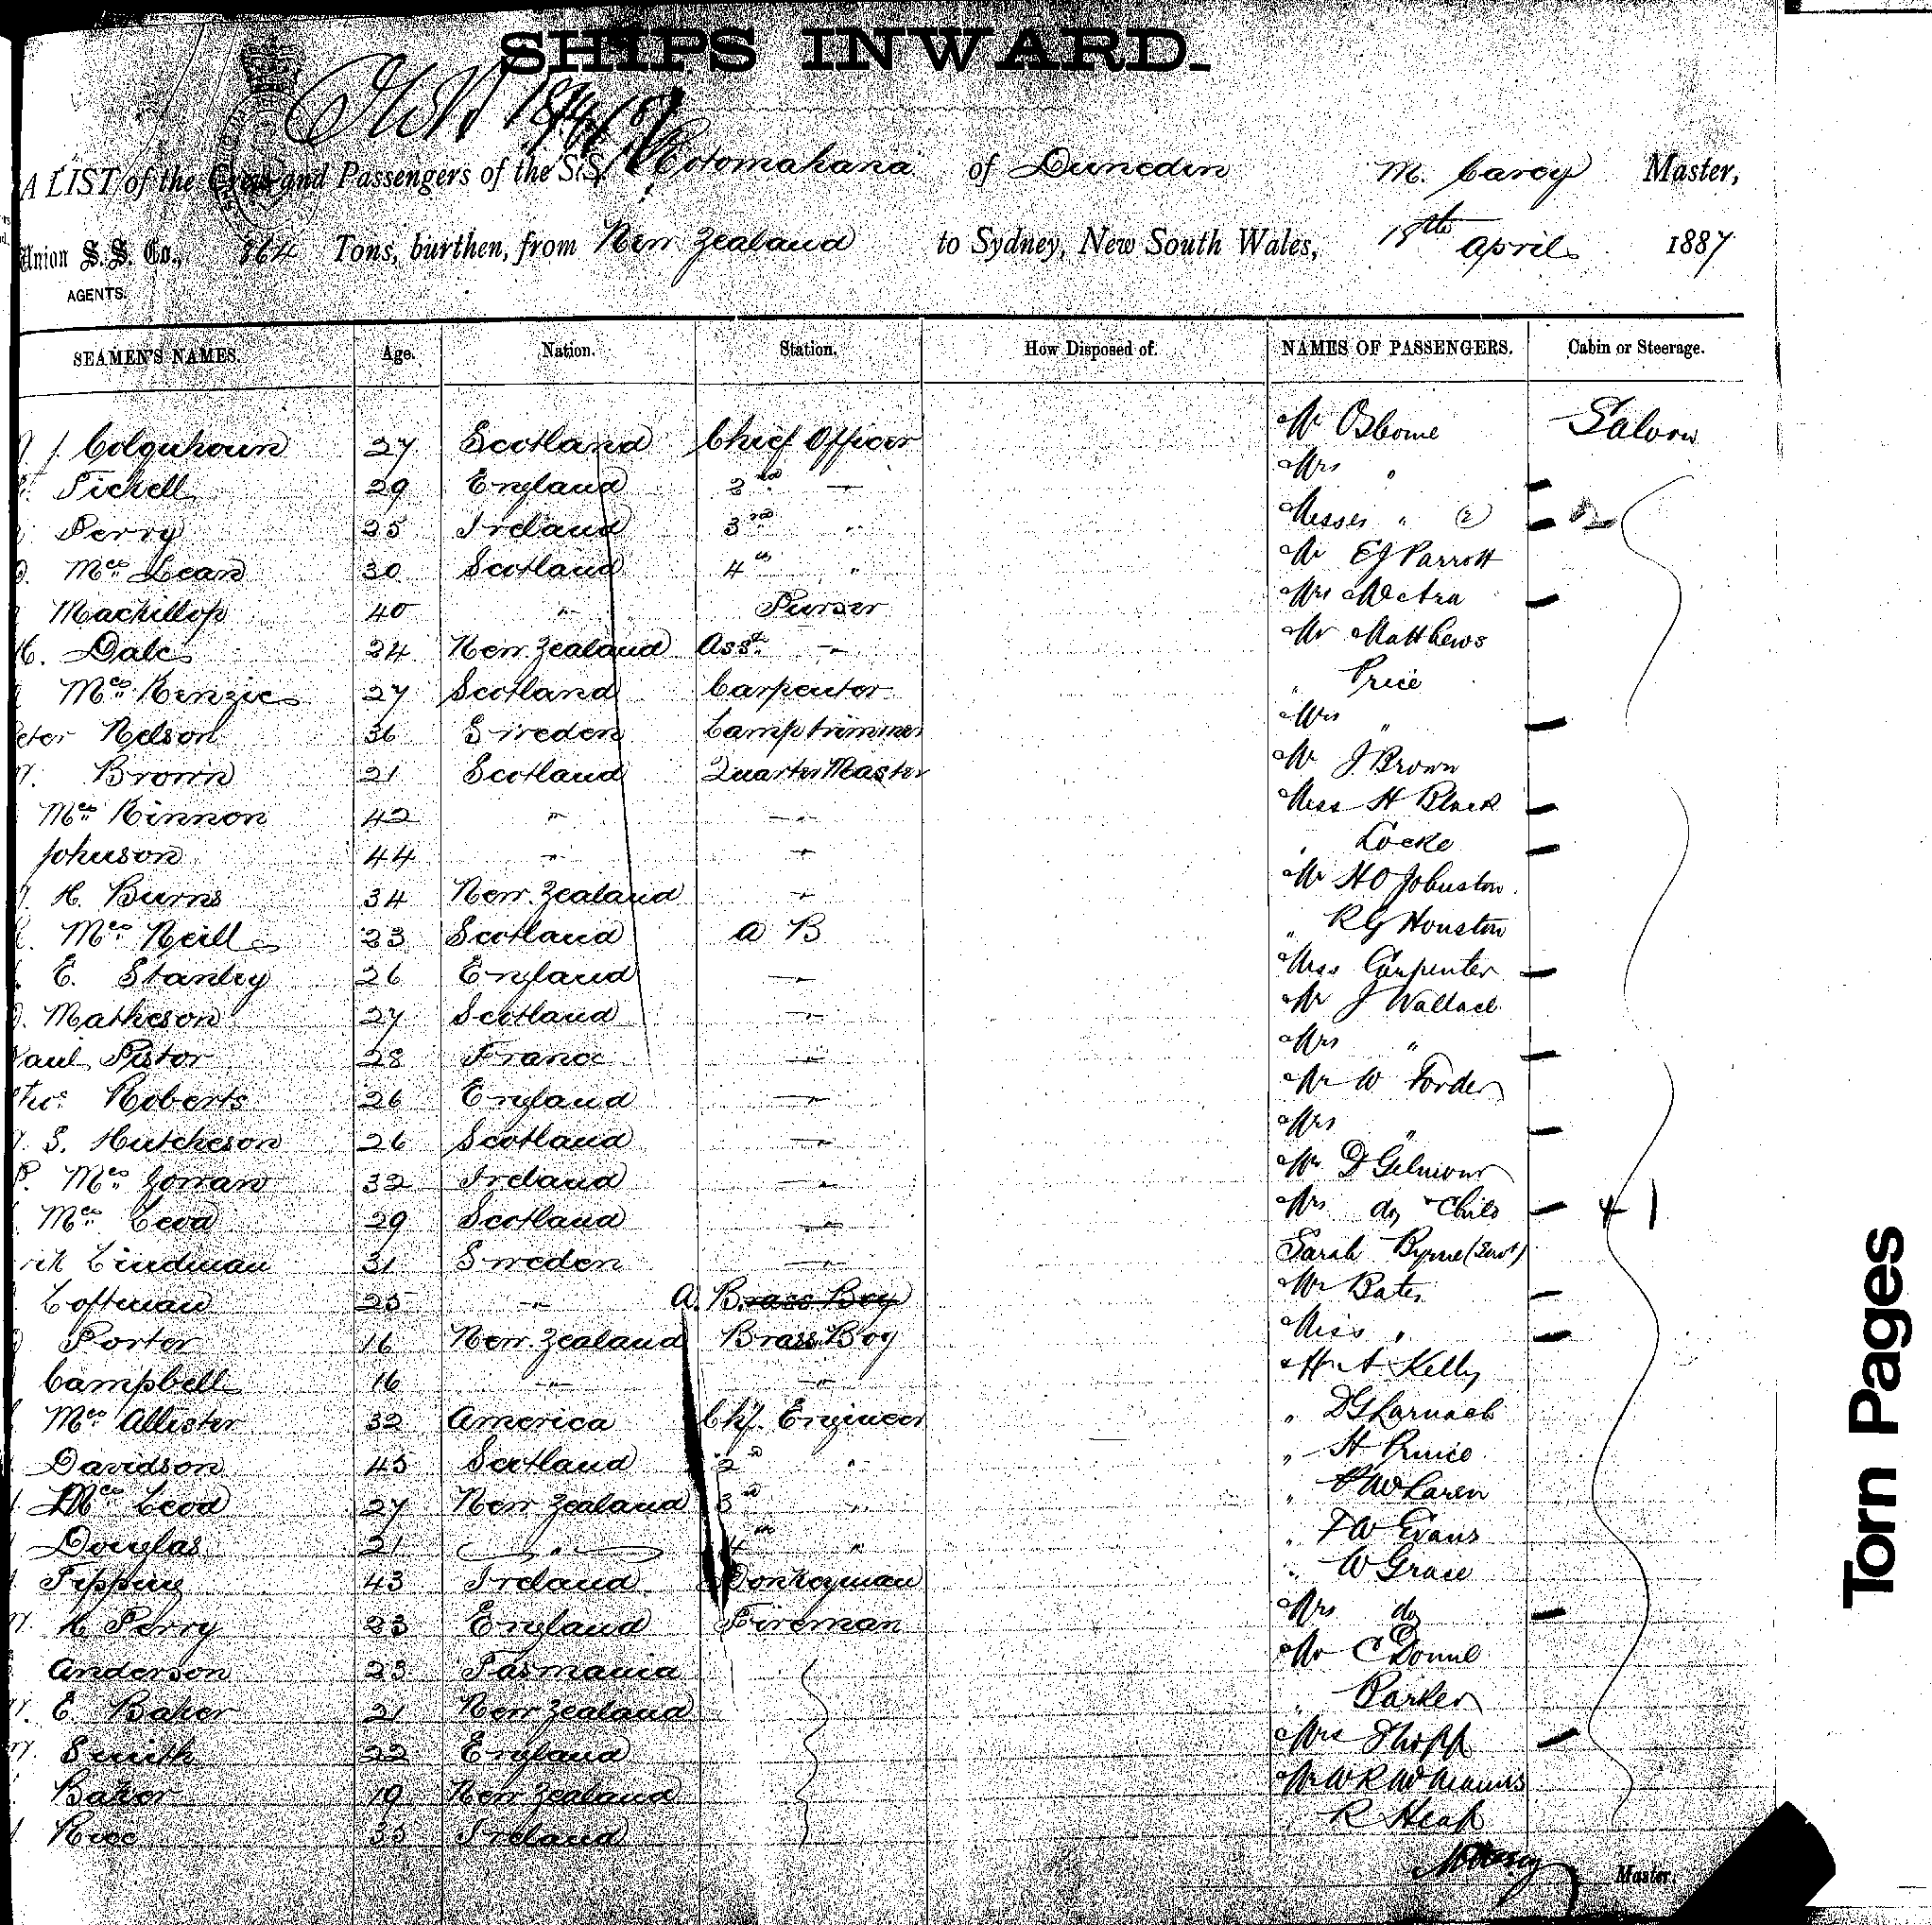 SHIPS INWARD.
A LIST of the Crew and Passengers of the S.S. Rotomahana of Dunedin M. Carey Master,
Union S. S. Co., 864 Tons, burthen, from New Zealand to Sydney, New South Wales, 18th April 1887
AGENTS.
SEAMEN'S NAMES. Age. Nation. Station. How Disposed of. NAMES OF PASSENGERS. Cabin or Steerage.
J. Colquhoun 27 Scotland Chief Officer Mr Osborne Saloon
Tickell 29 England 2nd " Mrs "
Perry 25 Ireland 3rd " Misses " (2)
Mc Lean 30 Scotland 4th " Mr EJ Parrott
Mackillop 40 " Purser Mrs
H. Dale 24 New Zealand Asst. " Mr Matthews
Mc Kenzie 27 Scotland Carpenter " Price
Peter Nelson 36 Sweden Lamptrimmer Mrs "
Brown 21 Scotland Quarter Master Mr J Brown
Mc Kinnon 42 " " Miss H Black
Johnson 44 " " " Locke
H. Burns 34 New Zealand " Mr HO Johnston
Mc Neill 23 Scotland A B " RG Houston
E. Stanley 26 England " Miss Carpenter
Matheson 27 Scotland " Mr J Wallace
Paul Pistor 28 France " Mrs "
Thos. Roberts 26 England " Mr W Forder
S. Hutcheson 26 Scotland " Mrs "
P. Mc Gowan 32 Ireland " Mr D Gilmour
Mc Leod 29 Scotland " Mrs do & Child
Lindman 31 Sweden " Sarah Byrne (Servt)
Loftman 25 " A. Brass Boy Mr Bates
Porter 16 New Zealand Brass Boy Miss "
Campbell 16 " " Mr A Kelly
Mc Allister 32 America Chf. Engineer " DG Larnach
Davidson 45 Scotland 2nd " " H Prince
Mc Leod 27 New Zealand 3rd " " McLaren
Douglas 21 " 4th " " F W Evans
Tipping 43 Ireland Donkeyman " W Grace
H Perry 23 England Fireman Mrs do
Anderson 23 Tasmania Mr C Donne
E. Baker 21 New Zealand " Parker
Smith 22 England Mrs
Baker 19 New Zealand Mr W R Williams
Rice 35 Ireland R Heap
M Carey Master.
Torn Pages